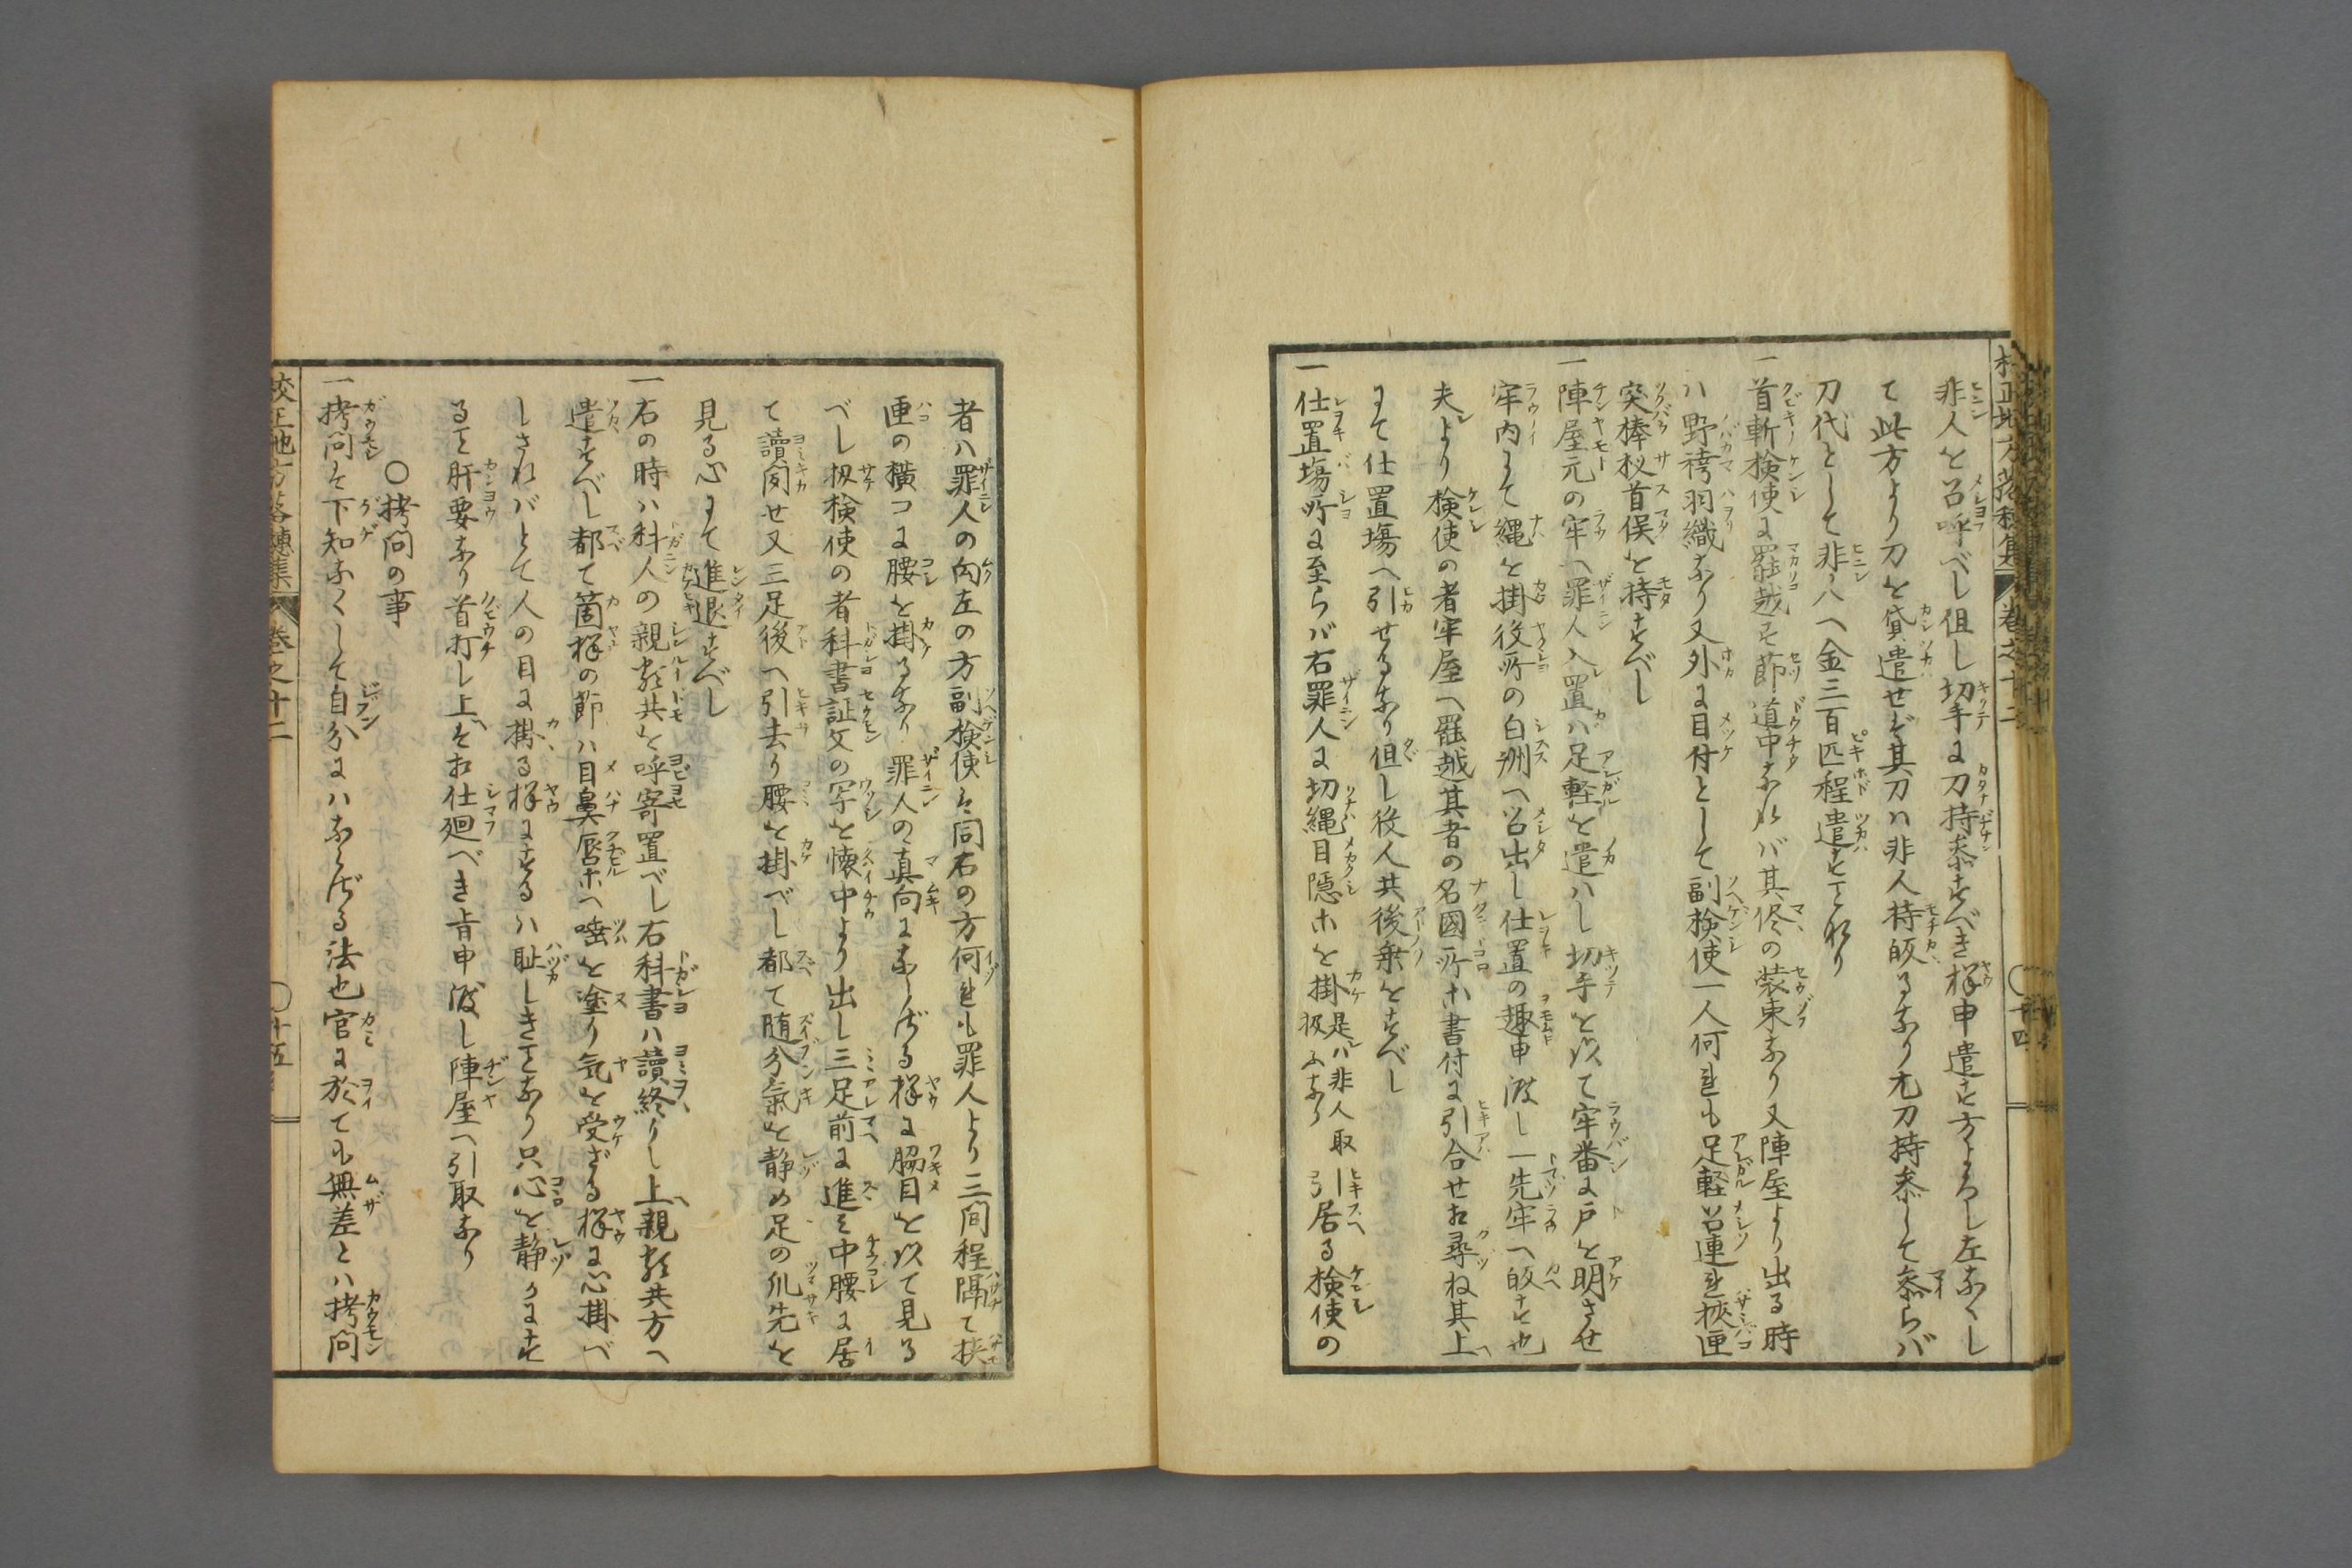 非人を召呼べし但し切手に刀持参すべき様申遣す方よろし左なくし
て此方より刀を貸遣せば其刀は非人持皈るなり尤刀持参して参らば
刀代として非人へ金三百匹程遣すことなり
一首斬検使に罷越す節道中なれバ其侭の装束なり又陣屋より出る時
ハ野袴羽織なり又外に目付として副検使一人何れも足軽召連れ挾匣
突棒杈首俣を持すべし
一陣屋元の牢へ罪人入置ハ足軽を遣ハし切手を以て牢番に戸を明させ
牢内にて縄を掛役所の白洲へ召出し仕置の趣申渡し一ト先牢へ皈す也
夫より検使の者牢屋へ罷越其者の名國所ホ書付に引合せ相尋ね其上
にて仕置場へ引せるなり但し役人共後乗をすべし
一仕置場所に至らバ右罪人に切縄目隠ホを掛是ハ非人取扱ふなり引居る検使の
校正地方落穂集 巻之十二 〇十四
者ハ罪人の向左の方副検使ハ同右の方何れも罪人より三間程隔て挾
匣の横コに腰を掛るなり罪人の真向にならざる様に脇目を以て見る
べし扱検使の者科書証文の写を懐中より出し三足前に進ミ中腰に居
て讀聞せ又三足後へ引去り腰を掛べし都て随分氣を静め足の爪先を
見る心にて進退すべし
一右の時ハ科人の親類共を呼寄置べし右科書ハ讀終りし上親類共方へ
遣すべし都て箇様の節ハ目鼻唇ホへ唾を塗り気を受ざる様に心掛べ
しされバとて人の目に掛る様にするハ耻しきことなり只心を静かにす
ること肝要なり首打し上ハ相仕廻べき旨申渡し陣屋へ引取なり
〇拷問の事
一拷問は下知なくして自分にハならざる法也官に於ても無差とハ拷問
校正地方落穂集 巻之十二 〇十五